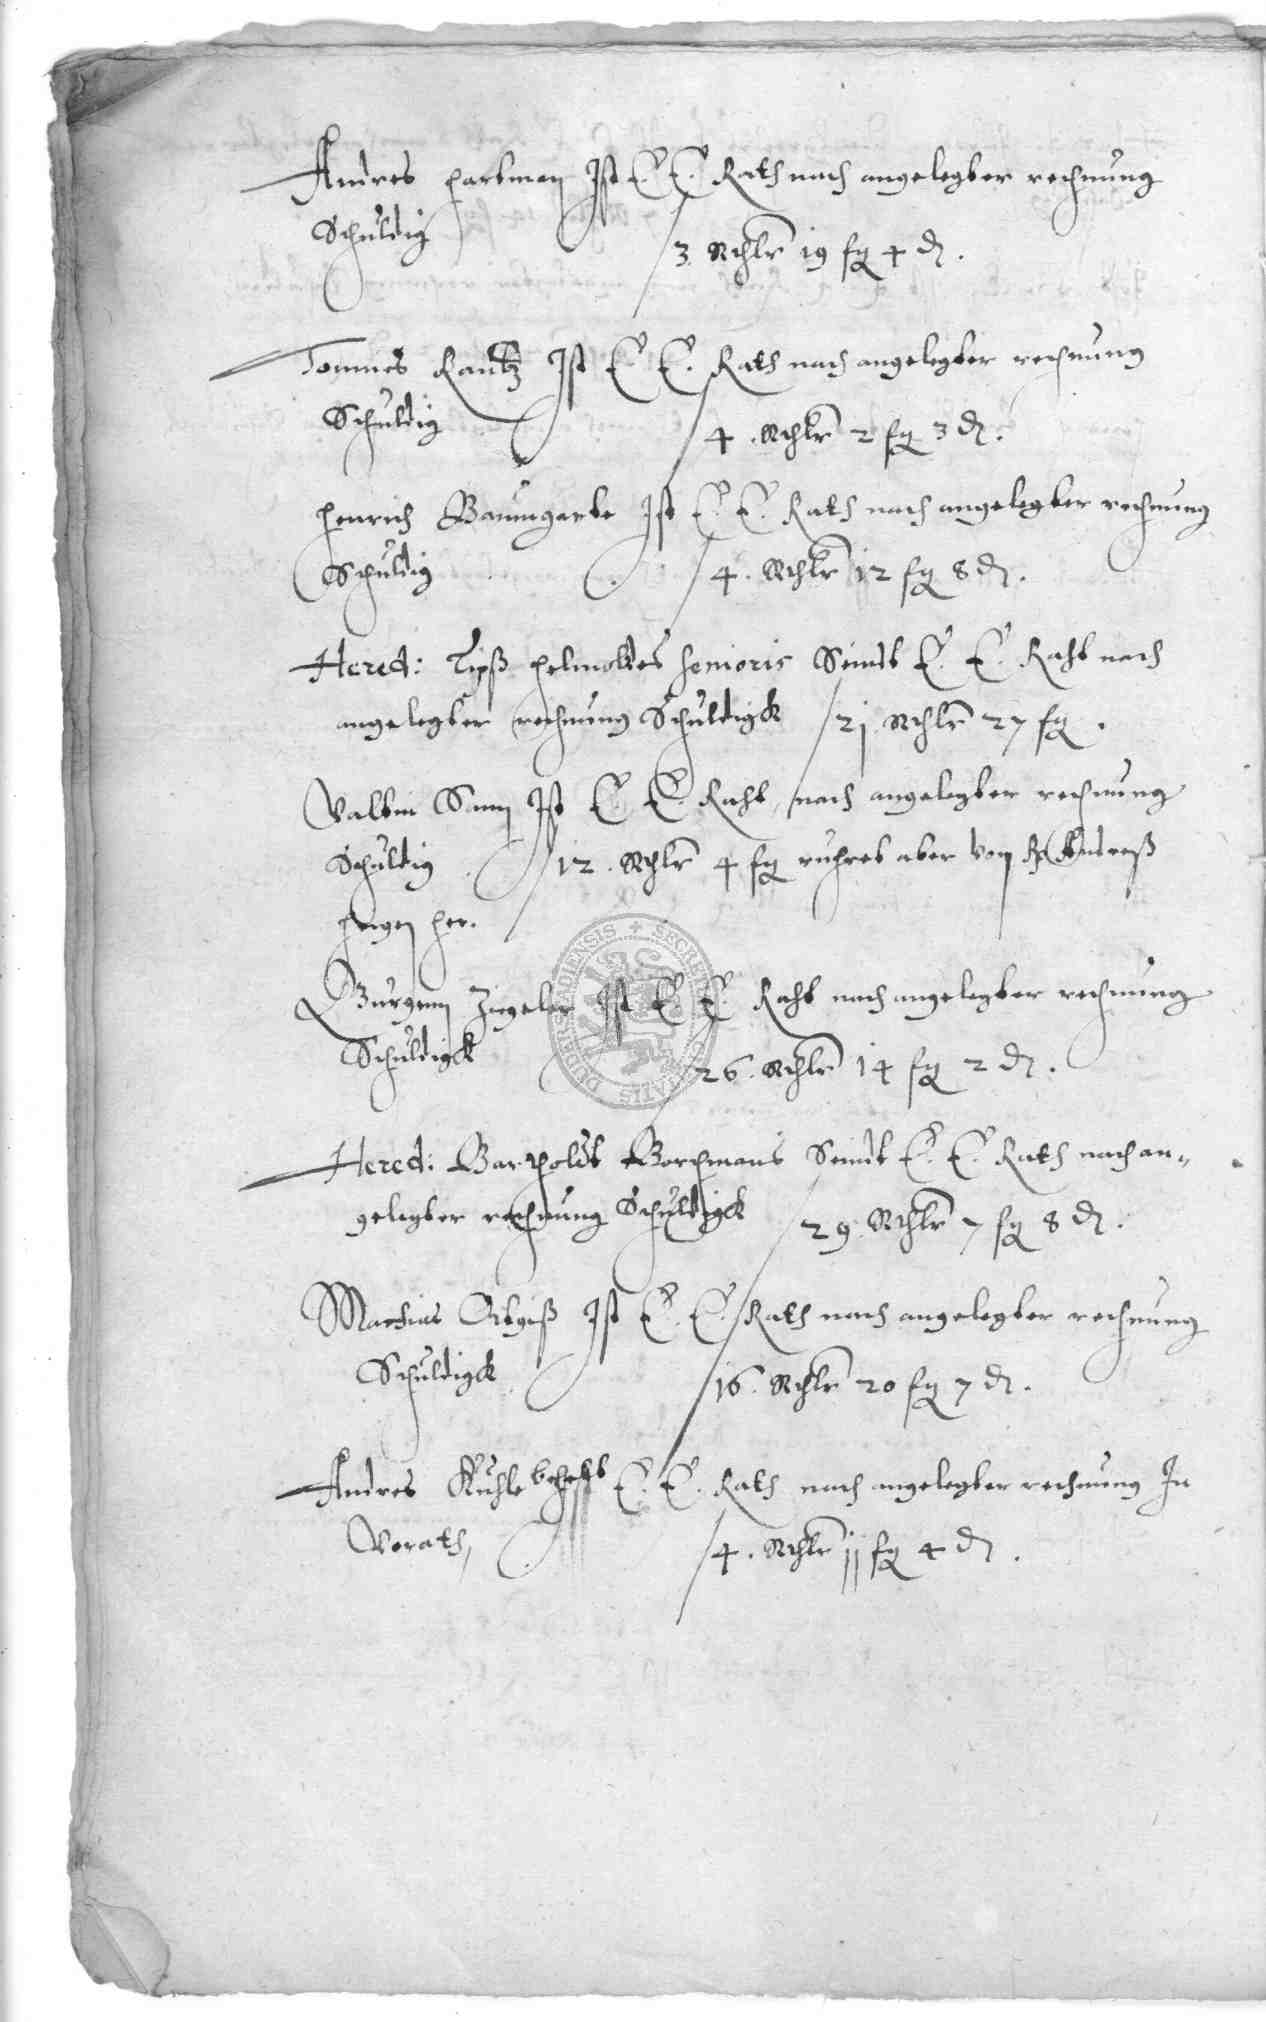 Andres Hartman Ist E. E. Rath nach angelegter rechnung
Schuldig
3. Rthlr 19 fg 4 d.
Tonnies Rantz Ist E. E. Rath nach angelegter rechnung
Schuldig
4. Rthlr 2 fg 3 d.
Henrich Baumgarte Ist E. E. Rath nach angelegter rechnung
Schuldig 4. Rthlr 12 fg 8 d.
Hered: Helmoldes senioris Seindt E. E. Raht nach
angelegter rechnung Schuldigk 21. Rthlr 27 fg.
Valtin Ist E. E. Raht nach angelegter rechnung
Schuldig 12. Rthlr 4 fg ruhret aber von Andreß
her.
Jurgen Zigeler Ist E. E. Raht nach angelegter rechnung
Schuldigk
26. Rthlr 14 fg 2 d.
Hered: Bartholdt Borchmans Seindt E. E. Rath nach an-
gelegter rechnung Schuldigk 29. Rthlr 7 fg 8 d.
Mathias Ist E. E. Rath nach angelegter rechnung
Schuldigk 16. Rthlr 20 fg 7 d.
Andres Kuhle behelt E. E. Rath nach angelegter rechnung In
Vorath, 4. Rthlr 11 fg 4 d.